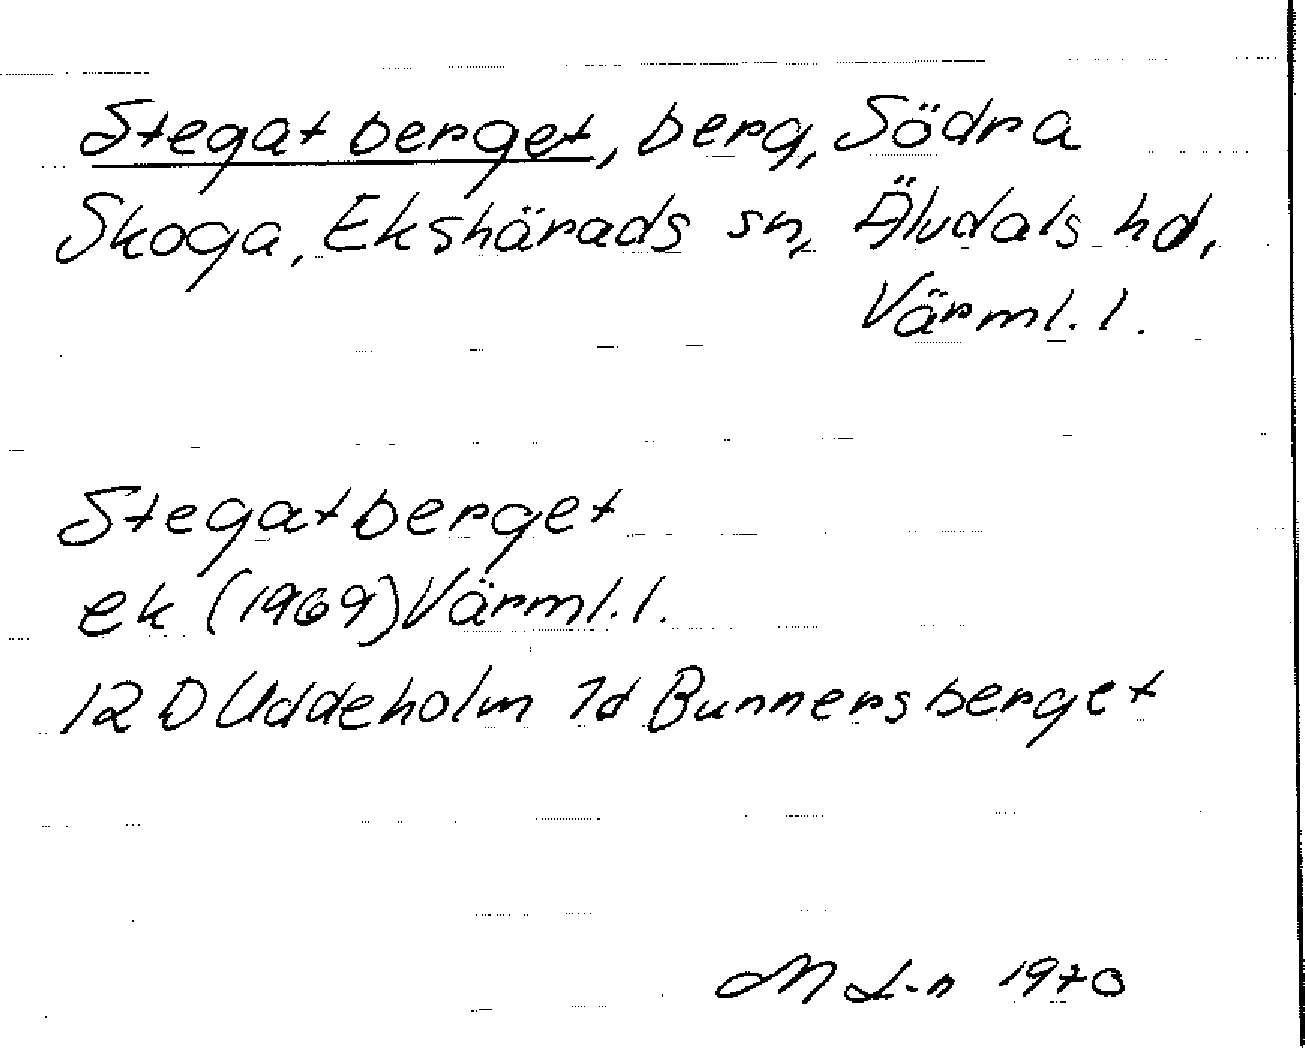 Stegatberget, berg, Södra
Skoga, Ekshärads sn, Älvdals hd,
Värml. l.
Stegatberget
ek (1969) Värml. l.
12 D Uddeholm 7d Bunnersberget
M L-n 1970